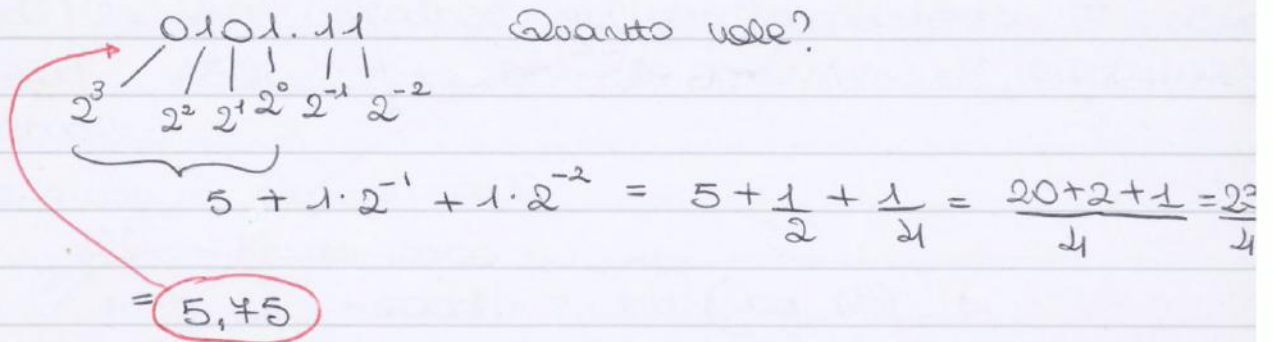 0101.11 Quanto vale?
2³ 2² 2¹ 2⁰ 2⁻¹ 2⁻²
5 + 1·2⁻¹ + 1·2⁻² = 5 + 1/2 + 1/4 = (20+2+1)/4 = 23/4
= 5,75